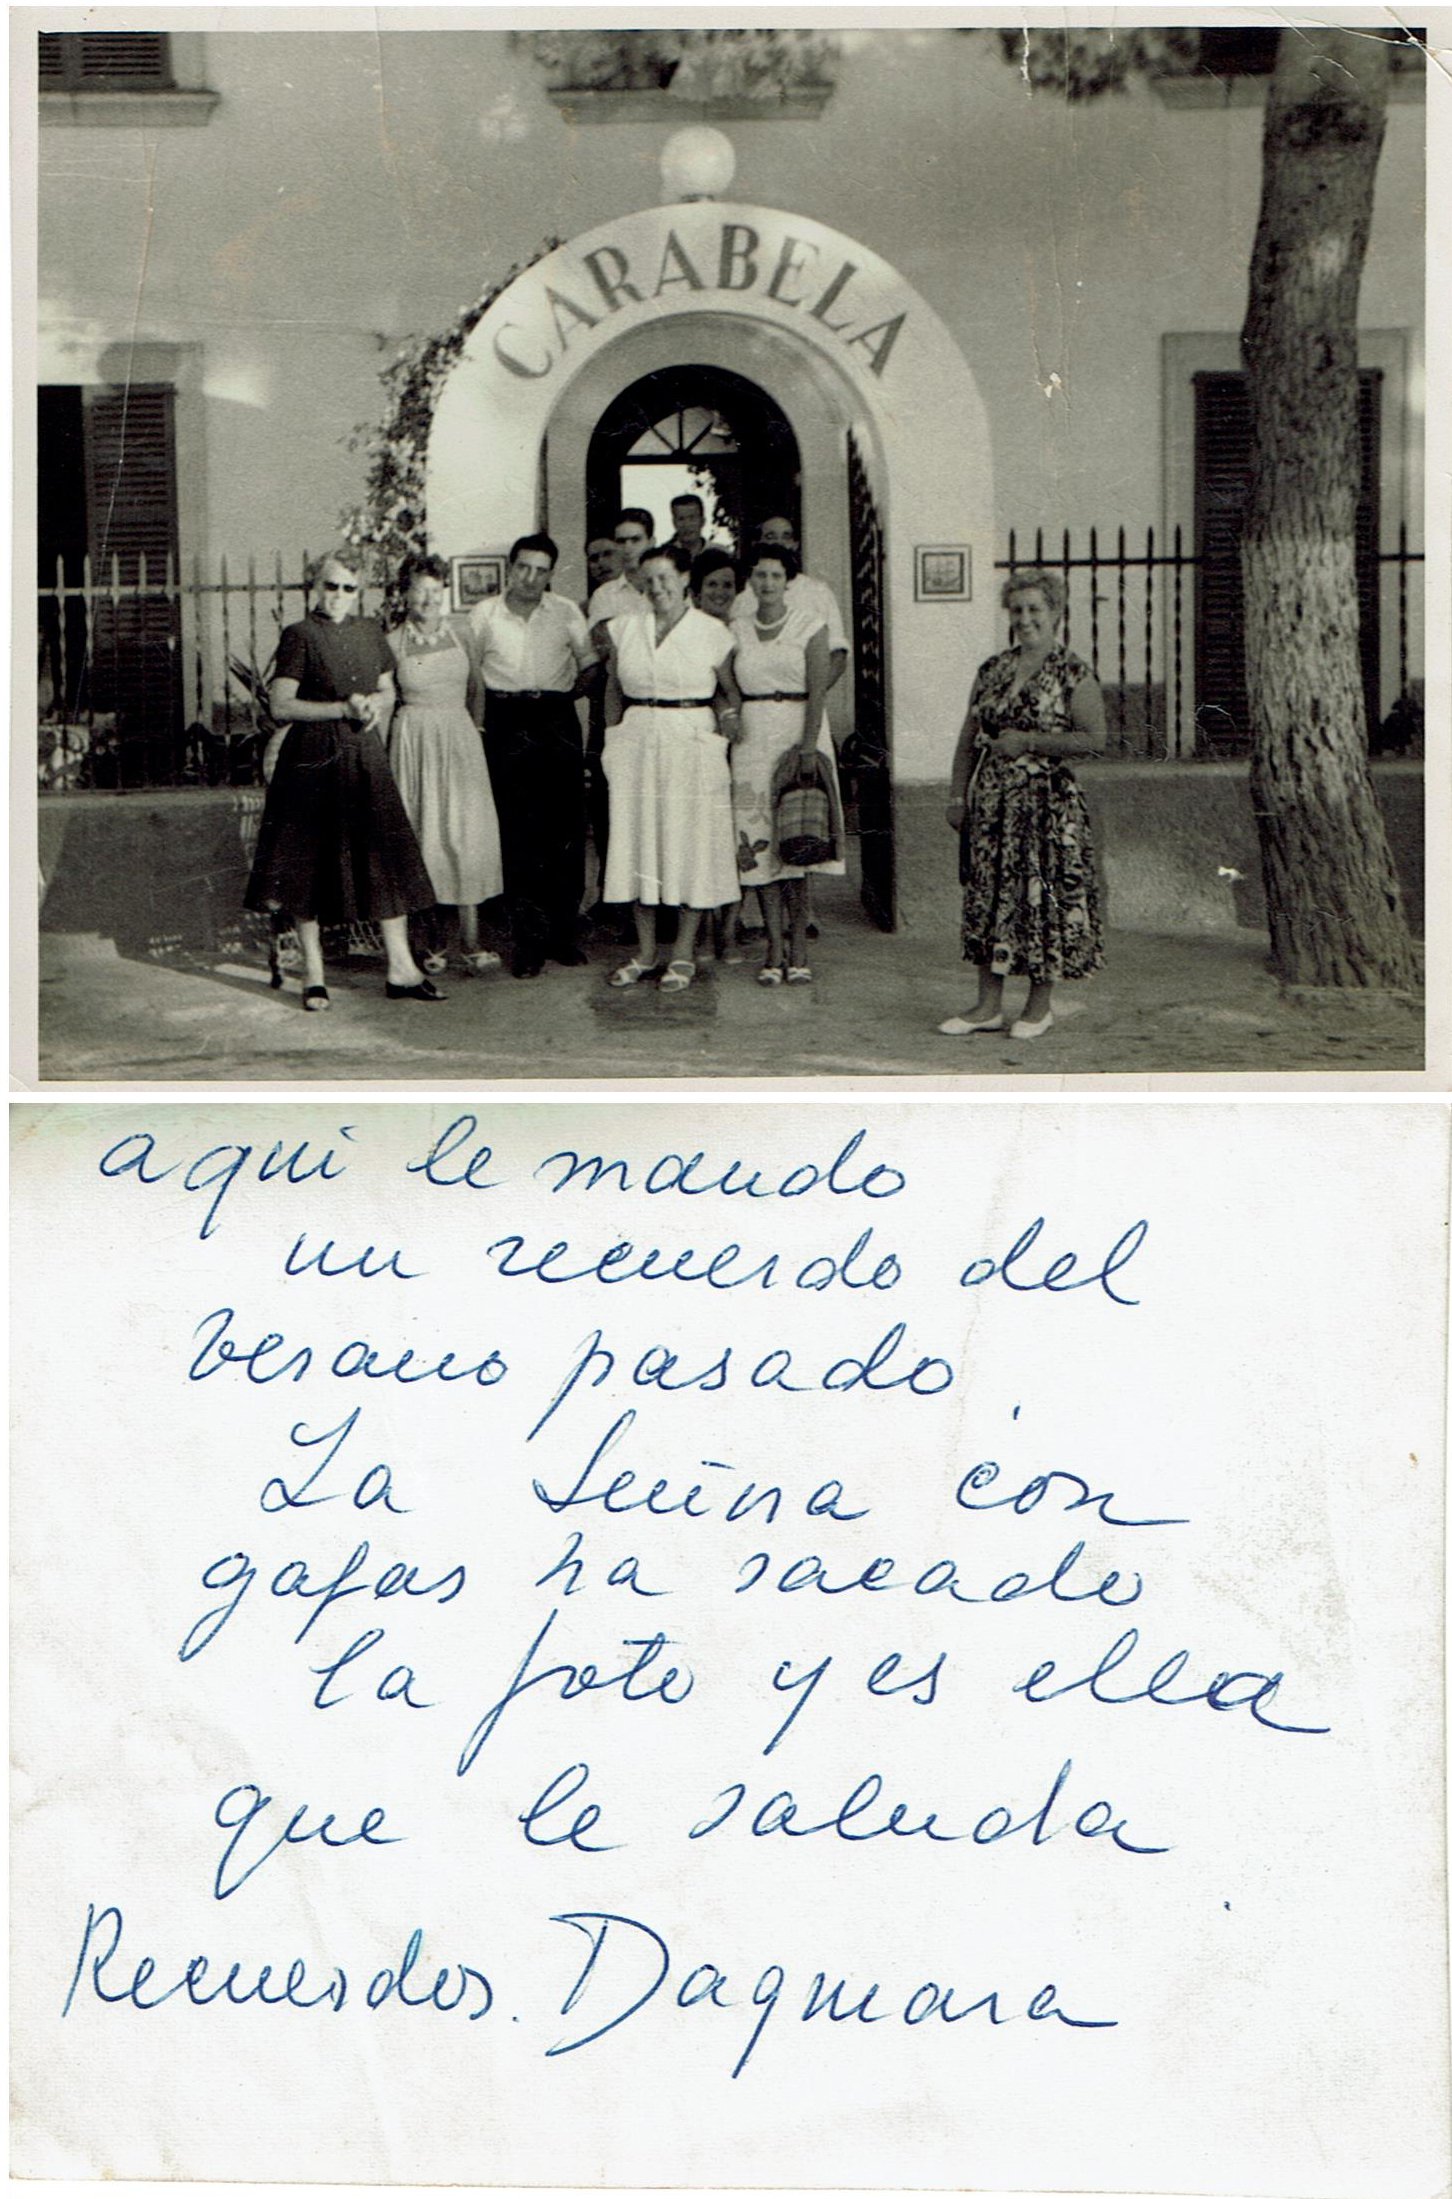 CARABELA
aqui le mando
un recuerdo del
verano pasado.
La Suiza con
gafas ha sacado
la foto y es ella
que le saluda.
Recuerdos. Dagmara